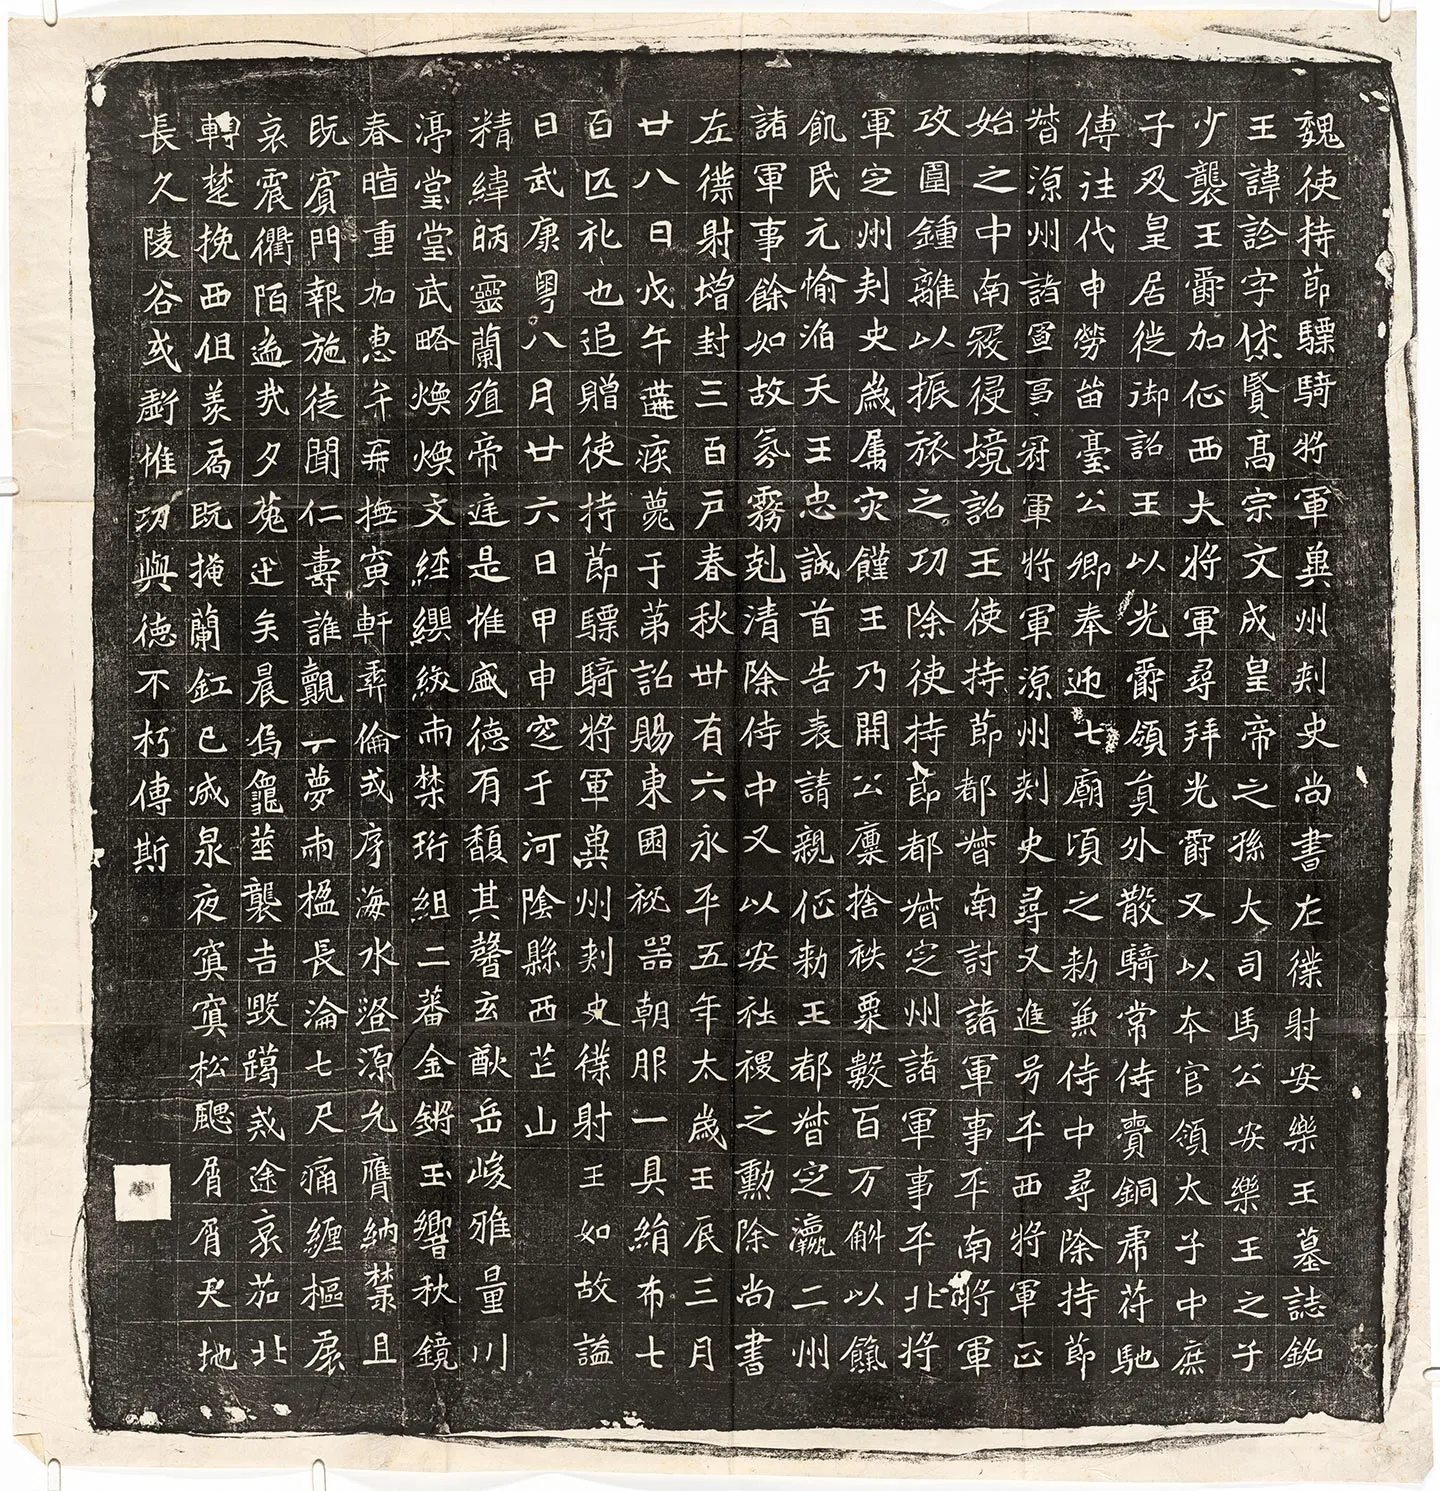 魏使持節驃騎將軍冀州刾史尚書左僕射安樂王墓誌銘
王諱詮字休賢高宗文成皇帝之孫大司馬公安樂王之子
少襲王爵加征西大將軍尋拜光爵又以本官領太子中庶
子及皇居徙御詔王以光爵領員外散騎常侍賷銅虎苻馳
傳注代申勞留臺公卿奉迎七廟頃之勑兼侍中尋除持節
督涼州諸軍事冠軍將軍涼州刾史尋又進号平西將軍正
始之中南冦侵境詔王使持節都督南討諸軍事平南將軍
攻圍鍾離以振旅之功除使持節都督定州諸軍事平北將
軍定州刾史歲属灾饉王乃開公廩捨秩粟數百万斛以餼
飢民元愉滔天王忠誠首告表請親征勑王都督定瀛二州
諸軍事餘如故氛霧剋清除侍中又以安社稷之勳除尚書
左僕射增封三百戸春秋卅有六永平五年太歲壬辰三月
廿八日戊午遘疾薨于第詔賜東園祕器朝服一具絹布七
百匹礼也追贈使持節驃騎將軍冀州刾史僕射王如故謚
曰武康粤八月廿六日甲申窆于河陰縣西芒山
精緯昞靈蘭殖帝庭是惟盛德有馥其馨玄猷岳峻雅量川
渟堂堂武略煥煥文經纓紱兩禁珩組二蕃金鏘玉響秋鏡
春暄重加惠弁再撫寅軒彞倫或序海水澄源允膺納禁且
既賓門報施徒聞仁壽誰覿一夢兩楹長淪七尺痛纏樞扆
哀震衢陌逝哉夕菟迅矣晨烏龜筮襲吉毀躅戒途哀茄北
轉楚挽西徂羨扃既掩蘭釭已滅泉夜寘寘松颸屑屑天地
長久陵谷或虧惟功與德不朽傳斯